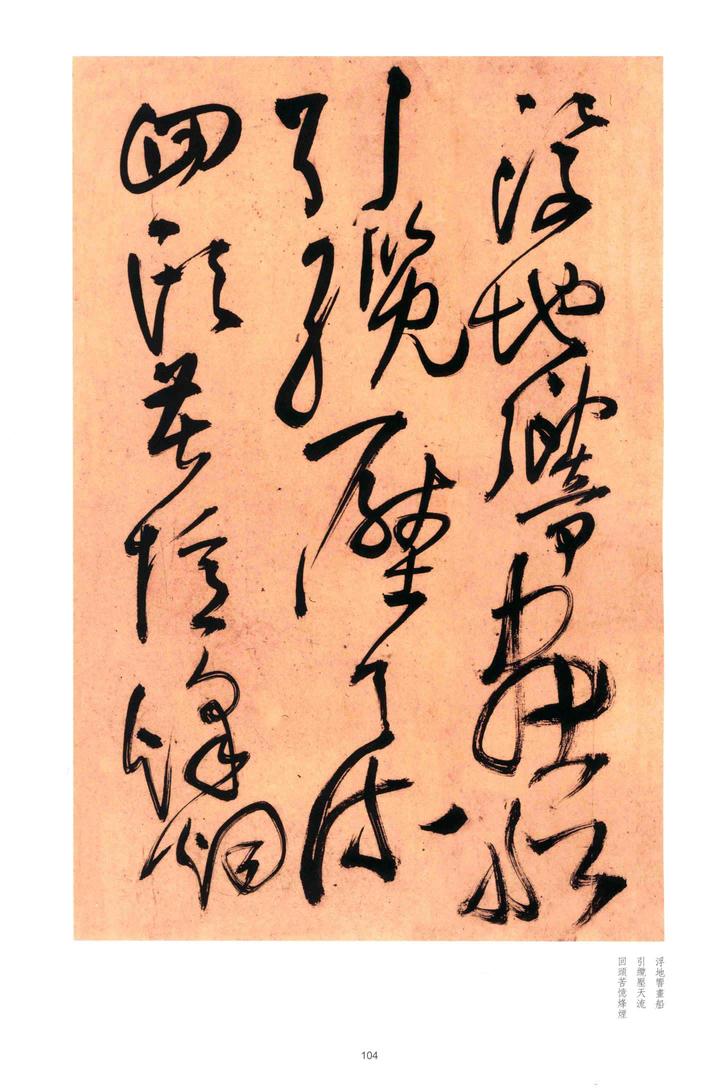 浮地響畫船
引纜壓天流
回頭苦憶烽煙
浮地響畫船
引纜壓天流
回頭苦憶烽煙
104